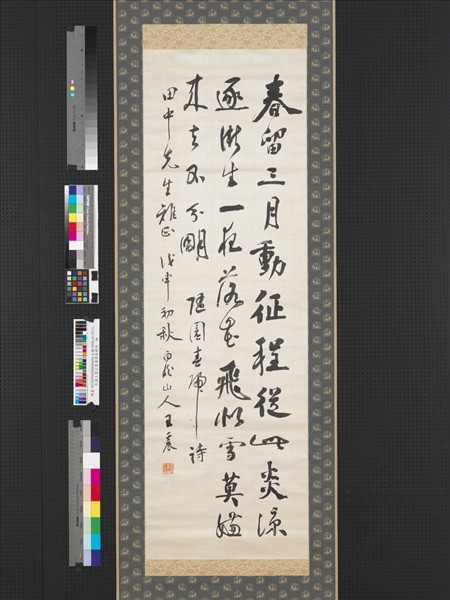 春留三月動征程從此炎涼
逐漸生一夜落花飛似雪莫嫌
來去不分明 隨園春詩
田中先生雅正 戊初秋白龍山人王震